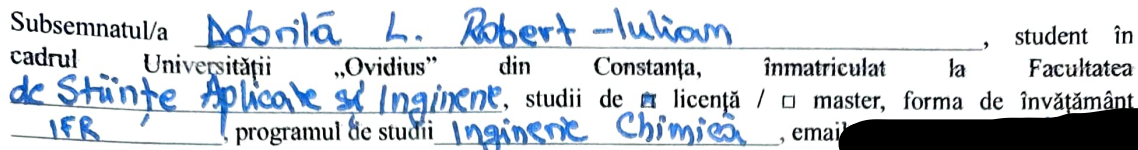 Subsemnatul/a Dobrilă L. Robert-Iulian, student în
cadrul Universității „Ovidius” din Constanța, înmatriculat la Facultatea
de Stiințe Aplicate și Inginerie, studii de ☒ licență / □ master, forma de învățământ
IFR, programul de studii Inginerie Chimică, email